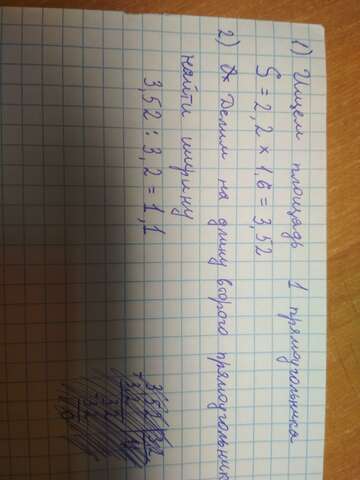 1) Ищем площадь 1 прямоугольника
S = 2,2 × 1,6 = 3,52
2) Делим на длину второго прямоугольник
найти ширину
3,52 : 3,2 = 1,1